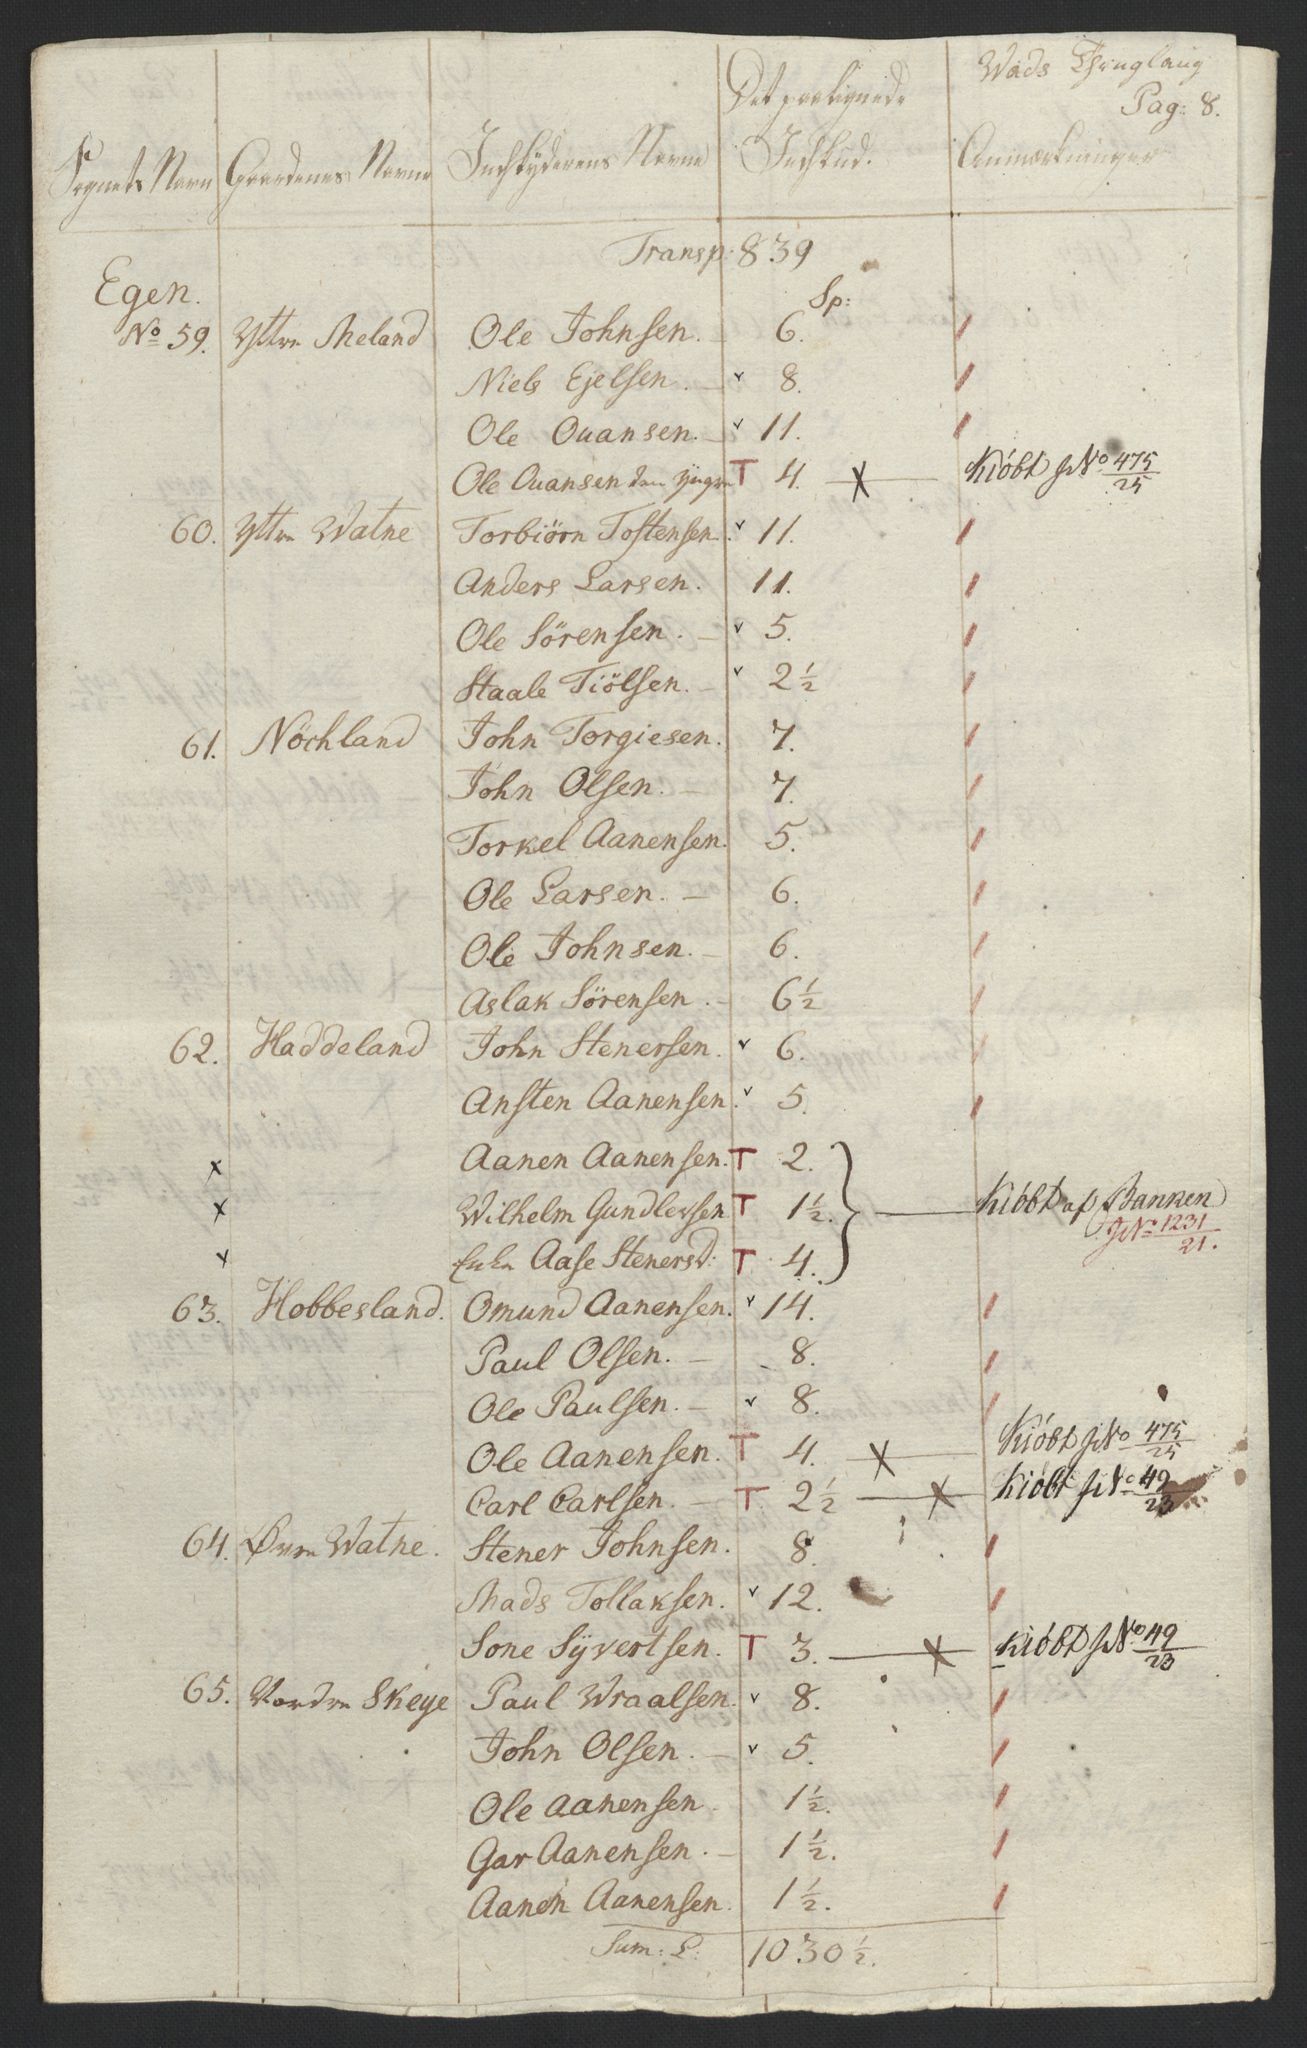 Wads Thinglaug
Pag: 8.
Sognets Navn Gaardenes Navne Indskyderens Navne Det paalignede Indskud. Anmærkninger
Transp: 839
Egen. Sp:
No 59. Yttre Meland Ole Johnsen. 6.
Niels Ejelsen. v 8.
Ole Ouansen. v 11.
Ole Ouansen den yngre T 4. x Kiöbt JNo 475/25
60. Yttre Watne Torbiörn Tostensen. v 11.
Anders Larsen. 11.
Ole Sörensen. v 5.
Staale Tiölsen. v 2 1/2
61. Nöchland John Torgiesen. 7.
John Olsen. 7.
Torkel Aanensen. 5.
Ole Larsen. 6.
Ole Johnsen. 6.
Aslak Sörensen. 6 1/2
62. Haddeland John Stenersen. v 6.
Ansten Aanensen. v 5.
x Aanen Aanensen. T 2.
x Wilhelm Gundlersen T 1 1/2. Kiöbt af Banken
JNo 1231/21.
v Enke Aase Stenersd: T 4.
63. Hobbesland. Omund Aanensen. v 14.
Paul Olsen. 8.
Ole Paulsen. v 8.
Ole Aanensen. T 4. x Kiöbt JNo 475/25
Carl Carlsen. T 2 1/2 x Kiöbt JNo 49/23
64. Øvre Watne. Stener Johnsen. 8.
Mads Tollaksen. v 12.
Sone Syvertsen. T 3. x Kiöbt JNo 49/23
65. Nordre Skeye Paul Wraalsen. v 8.
John Olsen. v 5.
Ole Aanensen. 1 1/2.
Gar Aanensen. 1 1/2.
Aanen Aanensen. 1 1/2.
Sum: L: 1030 1/2.